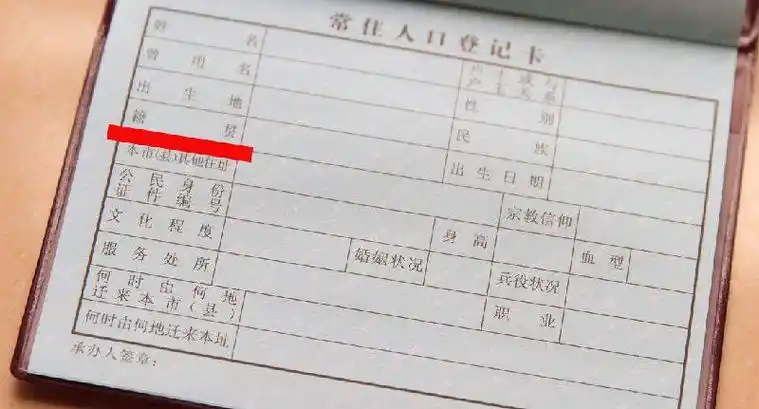 常住人口登记卡
姓名
户主或与
户主关系
曾用名
性别
出生地
民族
籍贯
出生日期
本市(县)其他住址
公民身份
证件编号
宗教信仰
文化程度
身高
血型
服务处所
婚姻状况
兵役状况
何时由何地
迁来本市(县)
职业
何时由何地迁来本址
承办人签章: